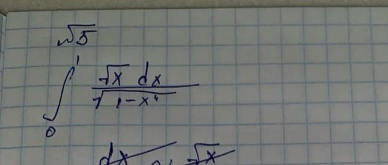 √5
∫₀¹ √x dx / √(1-x⁴)
dx √x